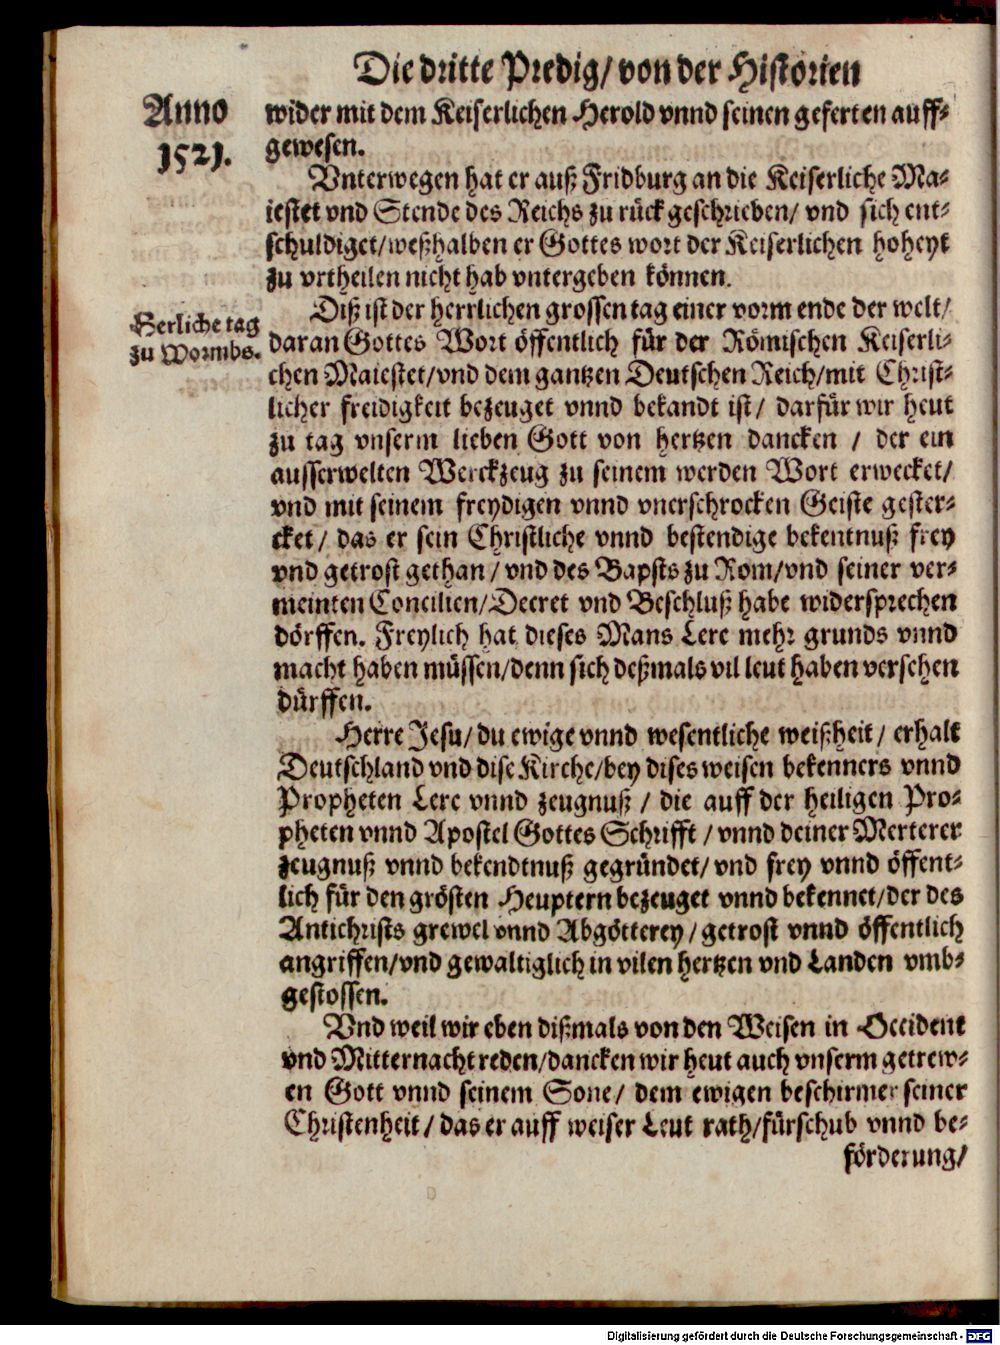 Die dritte Predig/ von der Historien
Anno
1521.
wider mit dem Keiserlichen Herold vnnd seinen geferten auff-
gewesen.
Vnterwegen hat er auß Fridburg an die Keiserliche Ma-
iestet vnd Stende des Reichs zu rück geschrieben/ vnd sich ent-
schuldiget/weßhalben er Gottes wort der Keiserlichen hoheyt
zu vrtheilen nicht hab vntergeben können.
Herliche tag
zu Wormbs.
Diß ist der herrlichen grossen tag einer vorm ende der welt/
daran Gottes Wort öffentlich für der Römischen Keiserli-
chen Maiestet/vnd dem gantzen Deutschen Reich/mit Christ-
licher freidigkeit bezeuget vnnd bekandt ist/ darfür wir heut
zu tag vnserm lieben Gott von hertzen dancken / der ein
ausserwelten Werckzeug zu seinem werden Wort erwecket/
vnd mit seinem freydigen vnnd vnerschrocken Geiste gester-
cket/ das er sein Christliche vnnd bestendige bekentnuß frey
vnd getrost gethan/ vnd des Bapsts zu Rom/vnd seiner ver-
meinten Concilien/Decret vnd Beschluß habe widersprechen
dörffen. Freylich hat dieses Mans Lere mehr grunds vnnd
macht haben müssen/denn sich deßmals vil leut haben versehen
dürffen.
Herre Jesu/ du ewige vnnd wesentliche weißheit/ erhalt
Deutschland vnd dise Kirche/bey dises weisen bekenners vnnd
Propheten Lere vnnd zeugnuß / die auff der heiligen Pro-
pheten vnnd Apostel Gottes Schrifft / vnnd deiner Merterer
zeugnuß vnnd bekendtnuß gegründet/ vnd frey vnnd öffent-
lich für den grösten Heuptern bezeuget vnnd bekennet/der des
Antichrists grewel vnnd Abgötterey/ getrost vnnd öffentlich
angriffen/vnd gewaltiglich in vilen hertzen vnd Landen vmb-
gestossen.
Vnd weil wir eben dißmals von den Weisen in Occident
vnd Mitternacht reden/dancken wir heut auch vnserm getrew-
en Gott vnnd seinem Sone/ dem ewigen beschirmer seiner
Christenheit/ das er auff weiser Leut rath/fürschub vnnd be-
förderung/
Digitalisierung gefördert durch die Deutsche Forschungsgemeinschaft - DFG